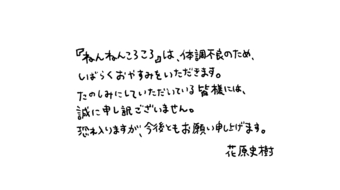 『ねんねんころころ』は、体調不良のため、
しばらくおやすみをいただきます。
たのしみにしていただいている皆様には、
誠に申し訳ございません。
恐れ入りますが、今後ともお願い申し上げます。
花原史樹